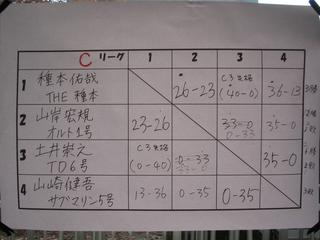 C リーグ 1 2 3 4
1 種本佑哉 26-23 36-13 3勝
THE 種本 (40-0)
2 山岸宏規 23-26 33-0 35-0
オルト1号 0-33
3 土井崇之 0-33 35-0
TD6号 (0-40)
4 山崎健吾 13-36 0-35 0-35 3敗
サブマリン5号